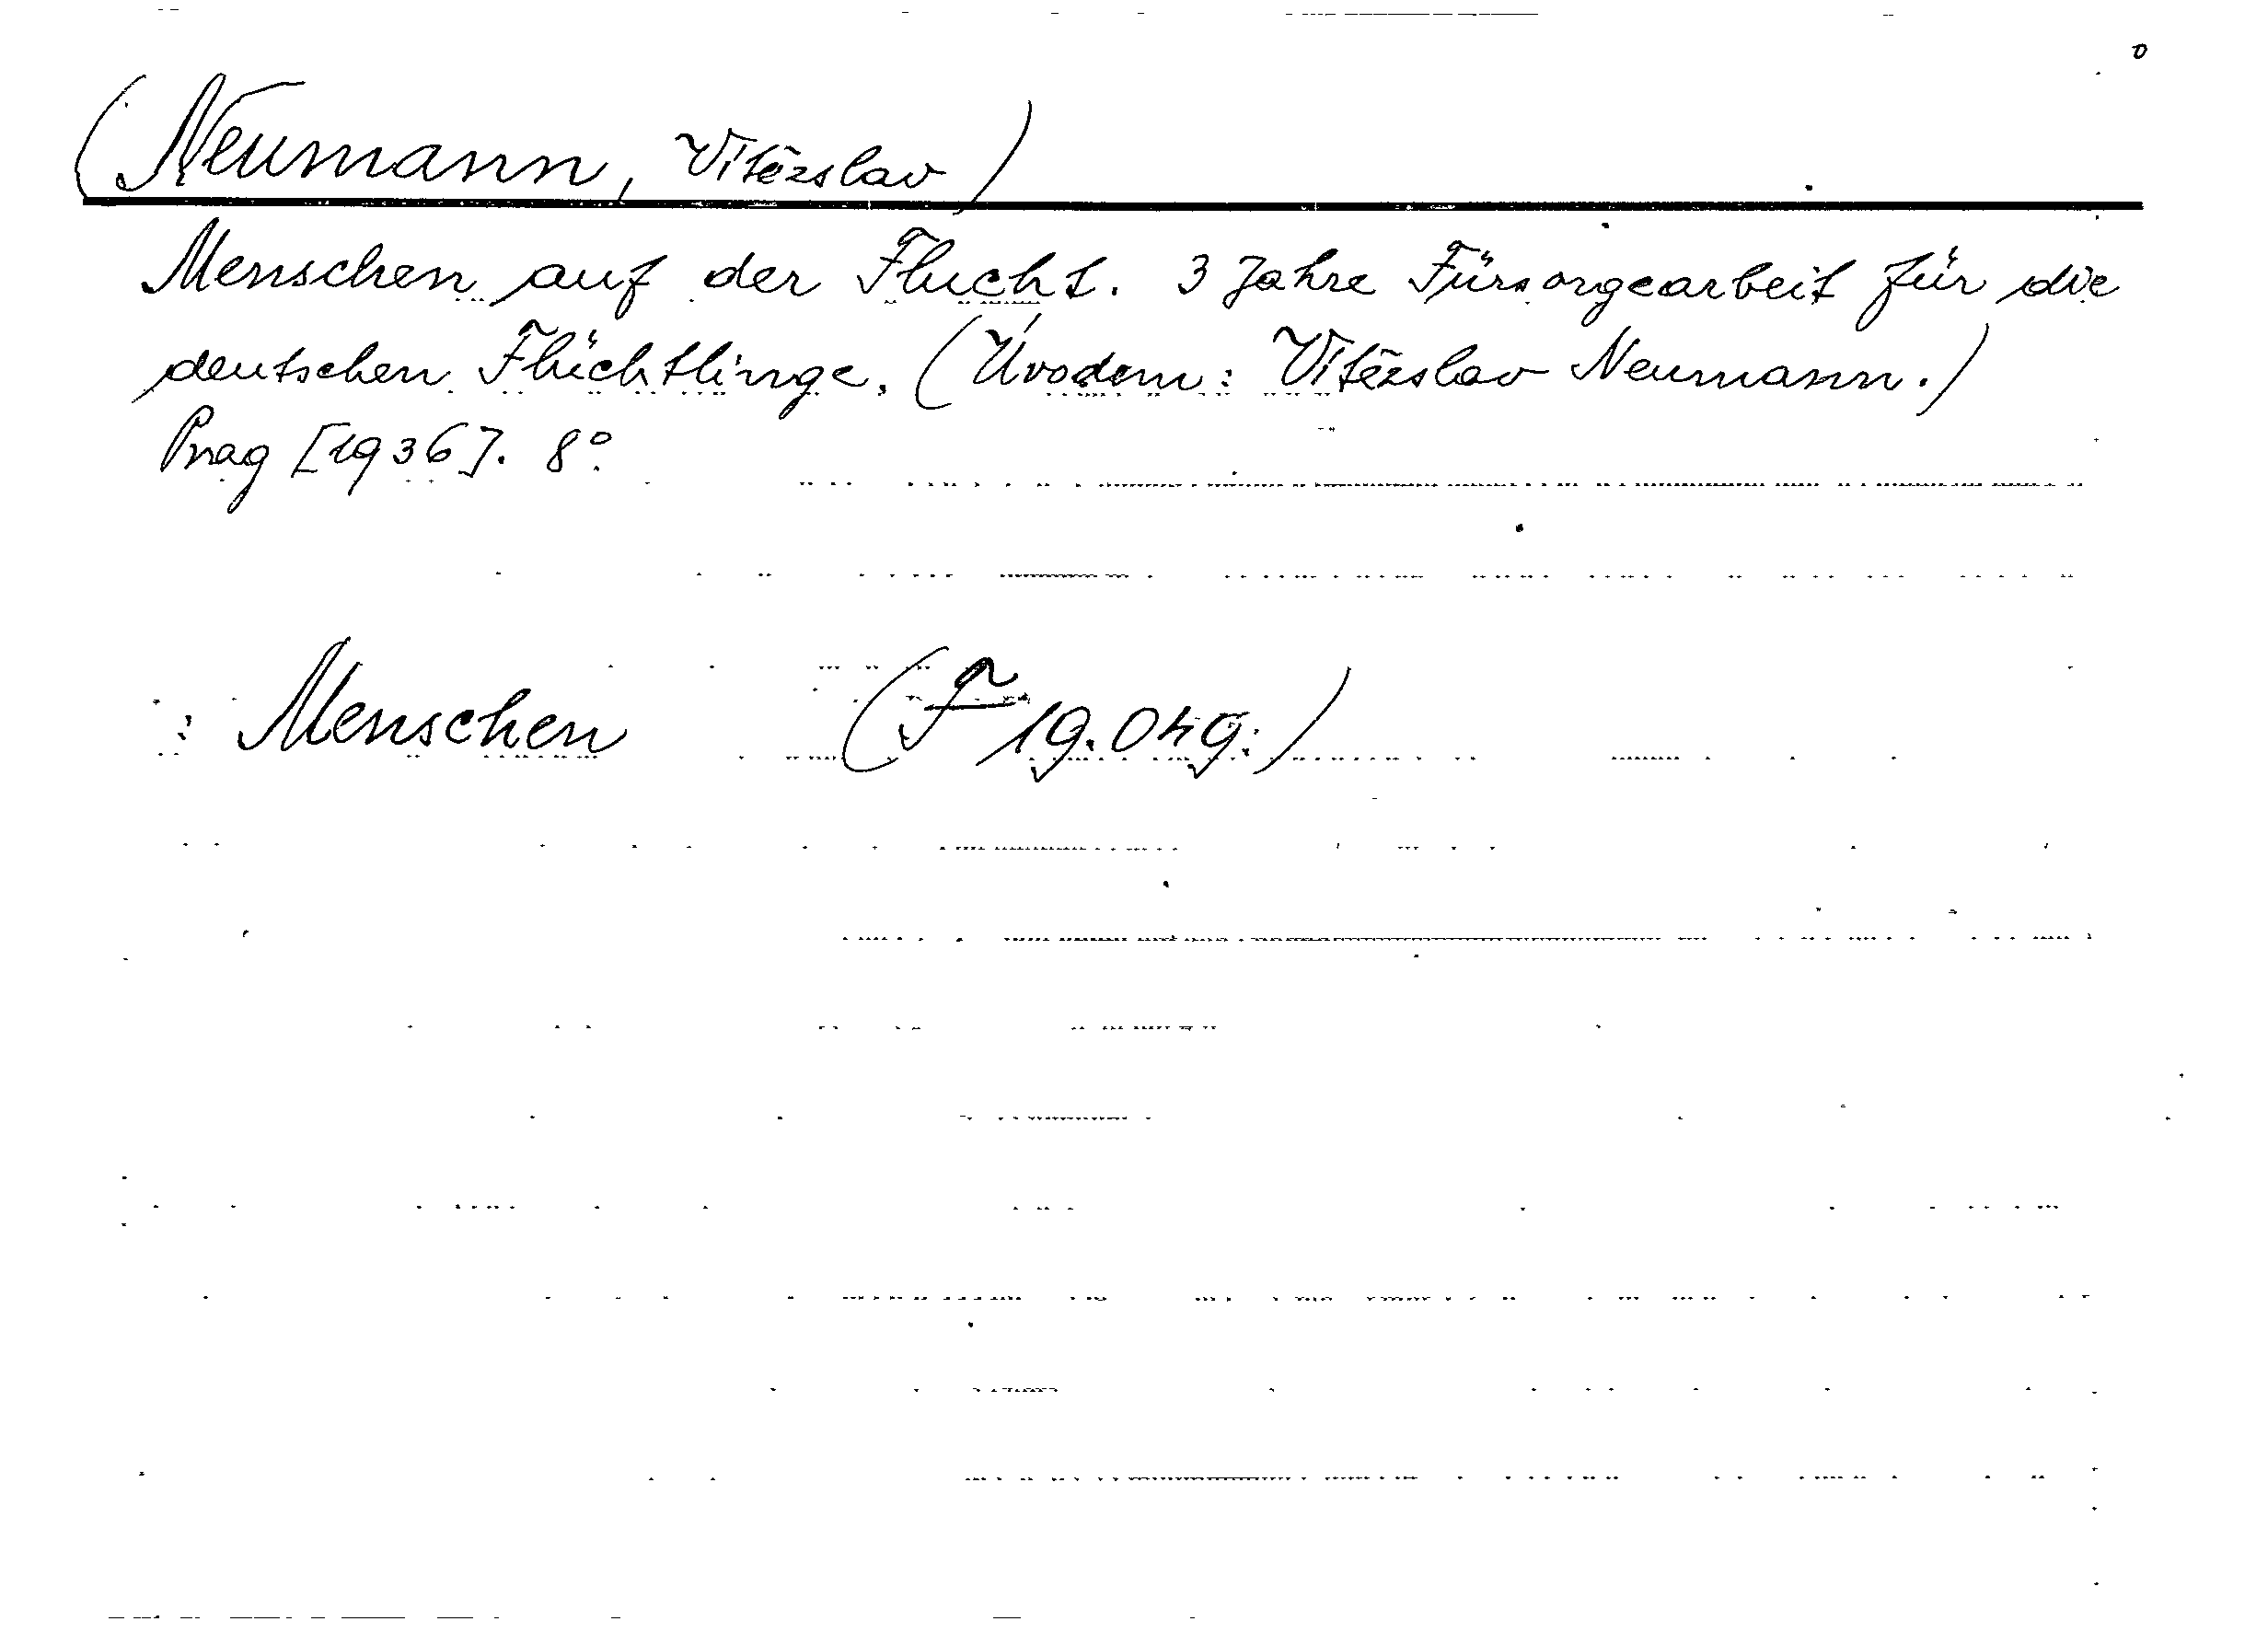 (Neumann, Vítězslav)
Menschen auf der Flucht. 3 Jahre Fürsorgearbeit für die
deutschen Flüchtlinge. (Úvodem: Vítězslav Neumann.)
Prag [1936]. 8°.
: Menschen (F 19.049.)